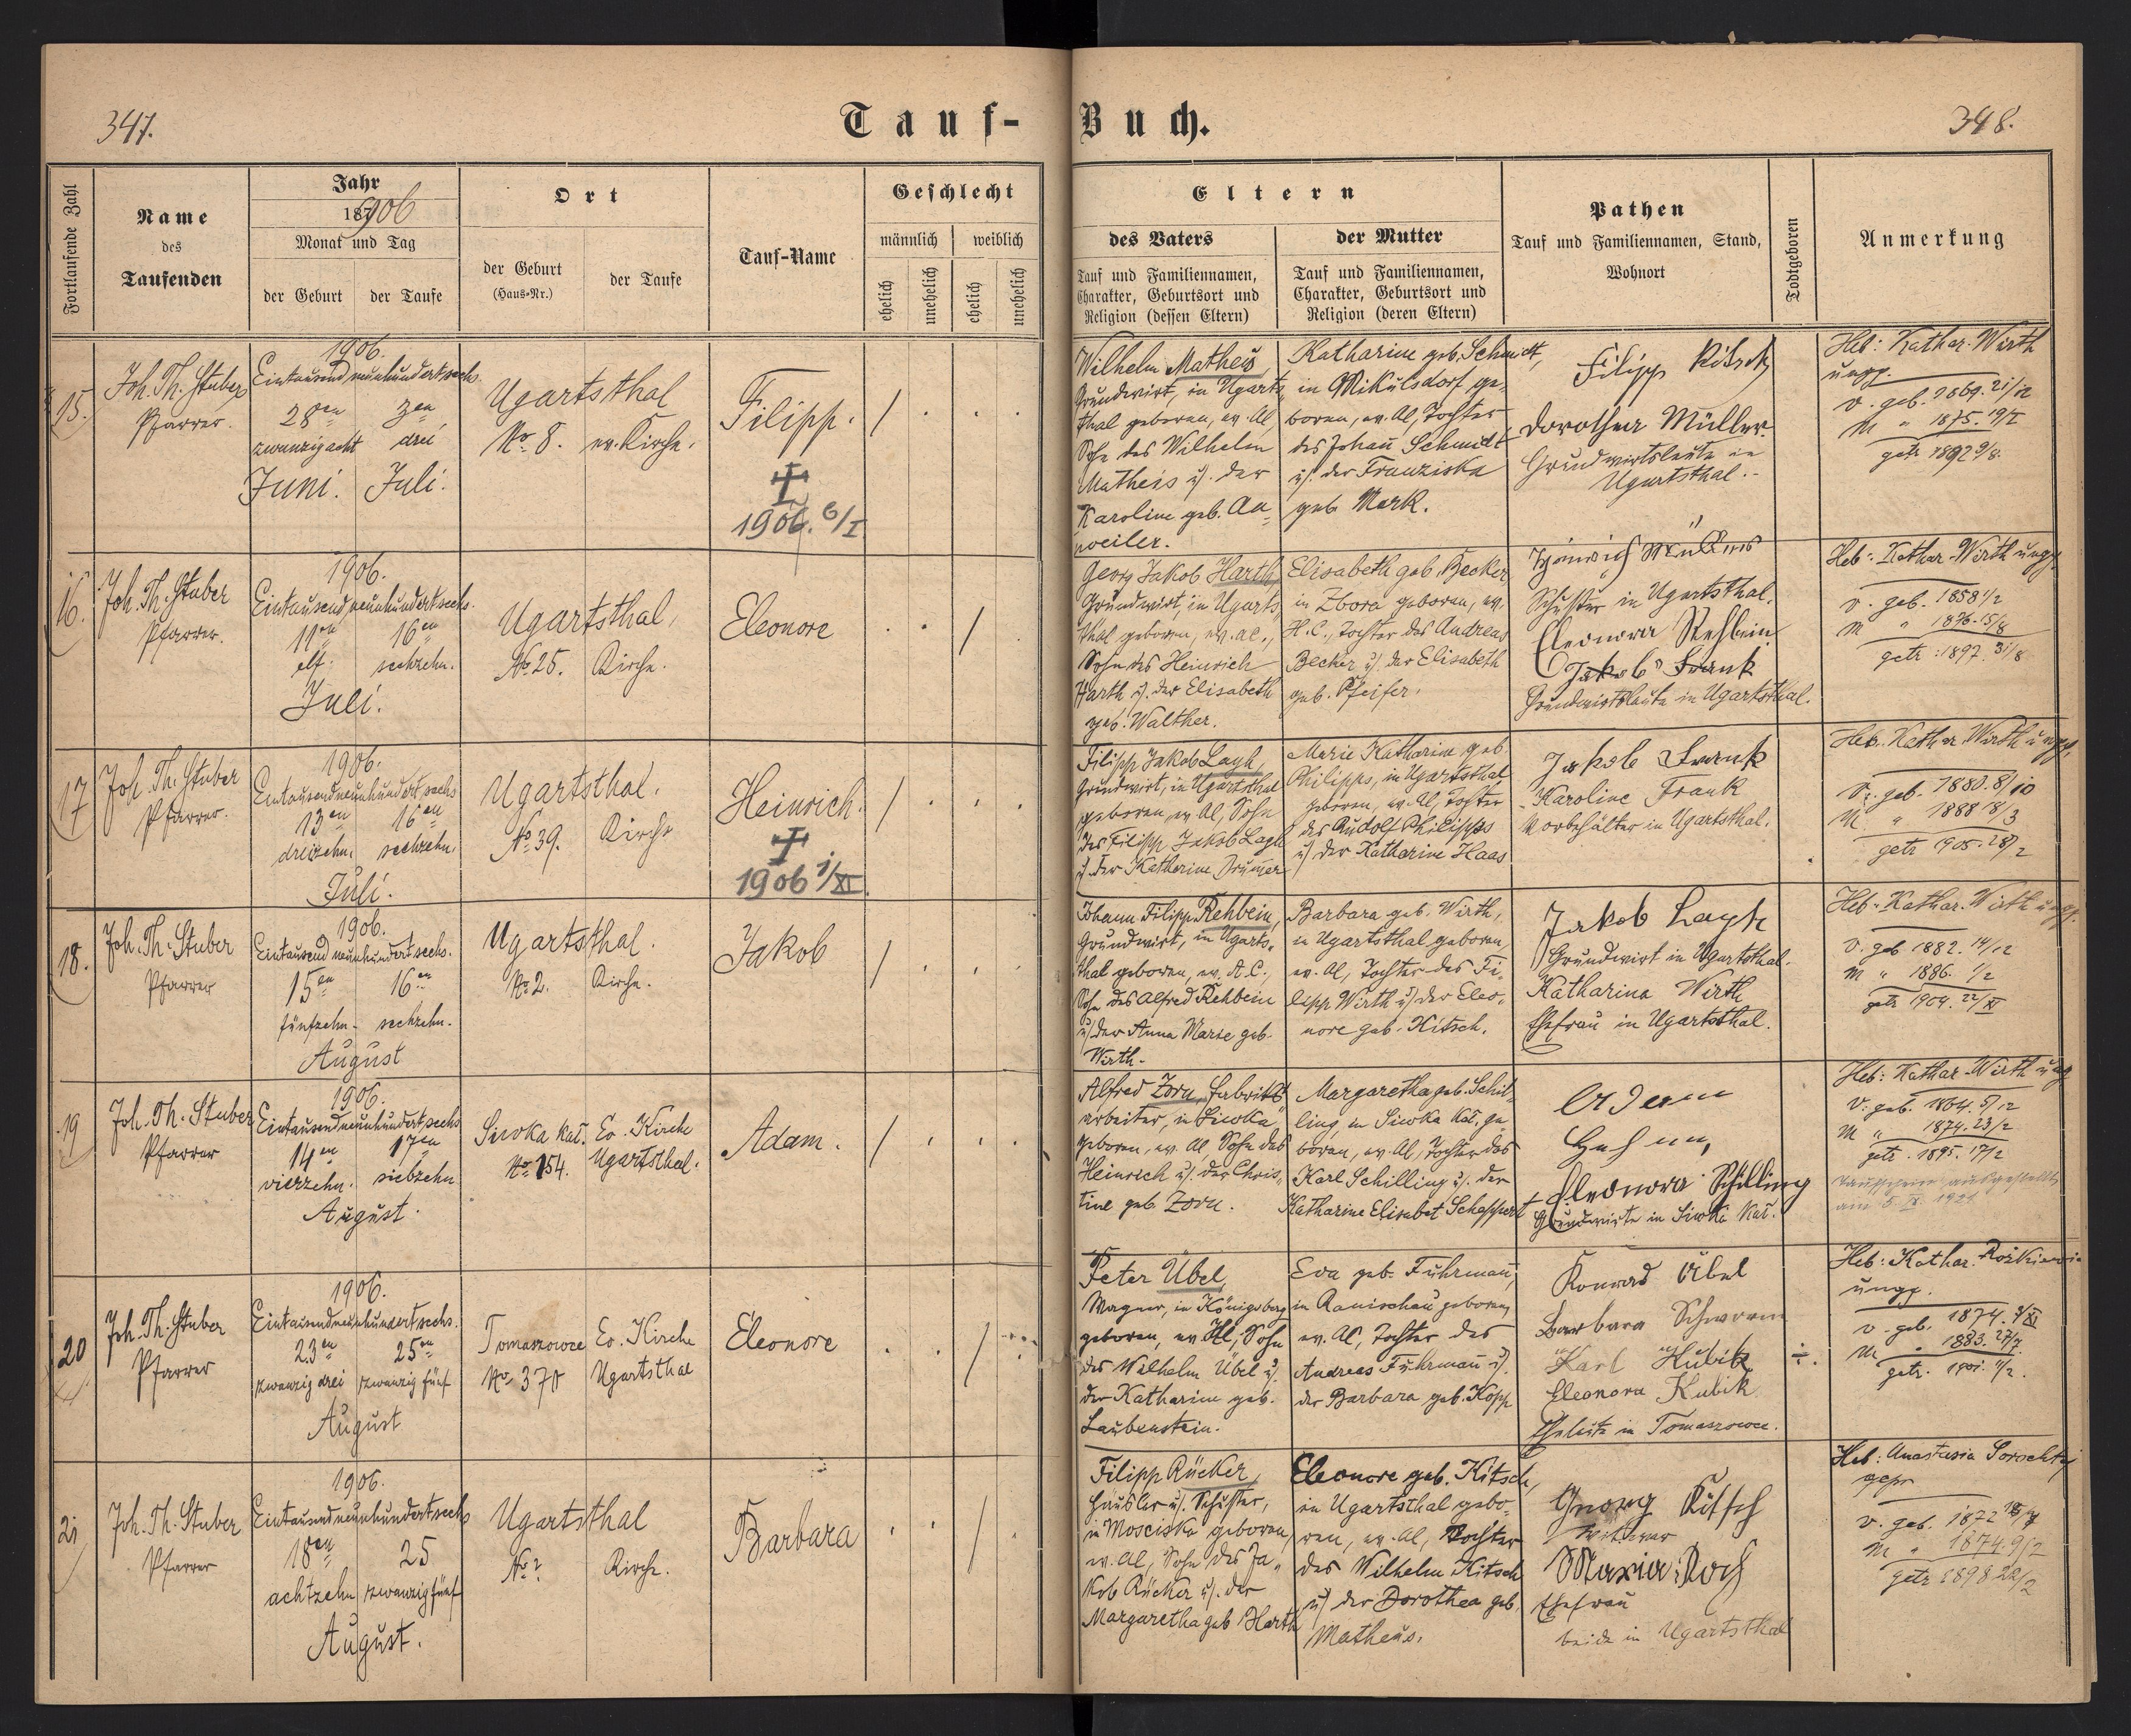 347.
Tauf-
Buch.
348.
Fortlaufende Zahl
Name
des
Taufenden
Jahr
187 906
Monat und Tag
der Geburt
der Taufe
Ort
der Geburt
(Haus-Nr.)
der Taufe
Tauf-Name
Geschlecht
männlich
weiblich
ehelich
unehelich
ehelich
unehelich
Eltern
des Vaters
Tauf und Familiennamen,
Charakter, Geburtsort und
Religion (dessen Eltern)
der Mutter
Tauf und Familiennamen,
Charakter, Geburtsort und
Religion (deren Eltern)
Pathen
Tauf und Familiennamen, Stand,
Wohnort
Todtgeboren
Anmerkung
15.
Joh. Th. Stuber
Pfarrer.
1906.
Eintausendneunhundertsechs.
28en 3en
zwanzigacht drei
Juni. Juli.
Ugartsthal
No. 8. ev. Kirche.
Filipp.
1906. 6/I
Wilhelm Matheis
Grundwirt, in Ugarts-
thal geboren, ev. Al,
Sohn des Wilhelm
Matheis u. der
Karoline geb. An-
weiler.
Katharine geb. Schmidt,
in Mikulsdorf ge-
boren, ev. Al, Tochter
des Johann Schmidt
u. der Franziska
geb. Mark.
Filipp Kitsch
Dorothea Müller
Grundwirtsleute in
Ugartsthal.
Heb: Kathar. Wirth
ungp.
v. geb. 1869. 21/12
M " 1875. 19/I
getr 1892 9/8.
16.
Joh. Th. Stuber
Pfarrer.
1906.
Eintausendneunhundertsechs.
11en 16en
elf. sechzehn.
Juli.
Ugartsthal,
No. 25. Kirche.
Eleonore
Georg Jakob Harth
Grundwirt, in Ugarts-
thal geboren, ev. al.,
Sohn des Heinrich
Harth u. der Elisabeth
geb. Walther.
Elisabeth geb. Becker
in Zbora geboren, ev.
H.C., Tochter des Andreas
Becker u. der Elisabeth
geb. Pfeifer.
Heinrich
Schuster in Ugartsthal.
Eleonora Rehbein
Jakob Frank
Grundwirtsleute in Ugartsthal.
Heb: Kathar. Wirth ungp.
v. geb. 1858 1/2
M " 1876. 15/8
getr: 1897. 31/8
17
Joh. Th. Stuber
Pfarrer.
1906.
Eintausendneunhundertsechs
13en 16en
dreizehn. sechzehn.
Juli.
Ugartsthal.
No. 39. Kirche
Heinrich.
1906 1/XI.
Filipp Jakob Layh,
Grundwirt, in Ugartsthal
geboren, ev Al, Sohn
des Filipp Jakob Layh
u. der Katharine Drummer
Marie Katharine geb
Philipps, in Ugartsthal
geboren, ev. Al, Tochter
des Rudolf Philipps
u. der Katharine Haas
Jakob Frank
Karoline Frank
Vorbehälter in Ugartsthal.
Heb. Kathar. Wirth ungp.
v. geb. 1880. 8/10
M. " 1888 18/3
getr 1905. 28/2
18.
Joh. Th. Stuber
Pfarrer
1906.
Eintausendneunhundertsechs.
15en 16en
fünfzehn. sechzehn.
August
Ugartsthal.
No. 2. Kirche.
Jakob
Johann Filipp Rehbein,
Grundwirt, in Ugarts-
thal geboren, ev. A.C.,
Sohn des Alfred Rehbein
u. der Anna Marie geb.
Wirth.
Barbara geb. Wirth,
in Ugartsthal geboren,
ev. Al, Tochter des Fi-
lipp Wirth u. der Eleo-
nore geb. Kitsch.
Jakob Layh
Grundwirt in Ugartsthal.
Katharina Wirth
Ehefrau in Ugartsthal.
Heb. Kathar. Wirth ungp.
v. geb 1882. 14/12
M " 1886. 1/2
getr 1904. 22/XI
19
Joh. Th. Stuber
Pfarrer
1906.
Eintausendneunhundertsechs
14en 17en
vierzehn. siebzehn
August.
Siwka kał. Ev. Kirche
No. 154. Ugartsthal.
Adam.
Alfred Zorn, Fabriks-
arbeiter, in Siwka
geboren, ev. Al, Sohn des
Heinrich u. der Chris-
tine geb. Zorn.
Margaretha geb. Schil-
ling, in Siwka Kał. ge-
boren, ev. Al, Tochter des
Karl Schilling u. der
Katharine Elisabet Scheppert
Eleonora Schilling
Grundwirte in Siwka Kał.
Heb: Kathar. Wirth ungp
V. geb. 1864. 5/12
M " 1874. 23/2
getr. 1895. 17/2
Taufschein ausgestellt
am 5. IX. 1921
20
Joh. Th. Stuber
Pfarrer
1906.
Eintausendneunhundertsechs.
23en 25en
zwanzigdrei zwanzigfünf
August
Tomaszowce Ev. Kirche
No. 370 Ugartsthal
Eleonore
Peter Übel,
Wagner, in Königsberg
geboren, ev Al, Sohn
des Wilhelm Übel u.
der Katharine geb.
Laubenstein.
Eva geb. Fuhrmann,
in Ranischau geboren,
ev. Al, Tochter des
Andreas Fuhrmann u.
der Barbara geb. Kopp
Konrad Übel
Barbara Schwarm
Karl Kubik
Eleonora Kubik
Eheleute in Tomaszowce.
Heb: Kathar.
ungp.
v. geb. 1874. 3/XI
M " 1883. 27/7.
getr. 1901. 11/2.
21
Joh. Th. Stuber
Pfarrer
1906.
Eintausendneunhundertsechs
18en 25
achtzehn zwanzigfünf
August.
Ugartsthal
No. ? Kirche.
Barbara
Filipp Rücker,
Häusler u. Schuster,
in Mosciska geboren,
ev. Al, Sohn des Ja-
kob Rücker u. der
Margaretha geb Harth
Eleonore geb. Kitsch,
in Ugartsthal gebo-
ren, ev. Al, Tochter
des Wilhelm Kitsch
u. der Dorothea geb.
Matheus.
Georg Kitsch
Witwer
Maria Koch
Ehefrau
beide in Ugartsthal
Heb: Anastasia Sorochtej
gepr
v. geb. 1872 18/8
M " 1874. 9/2
getr 1898 22/2